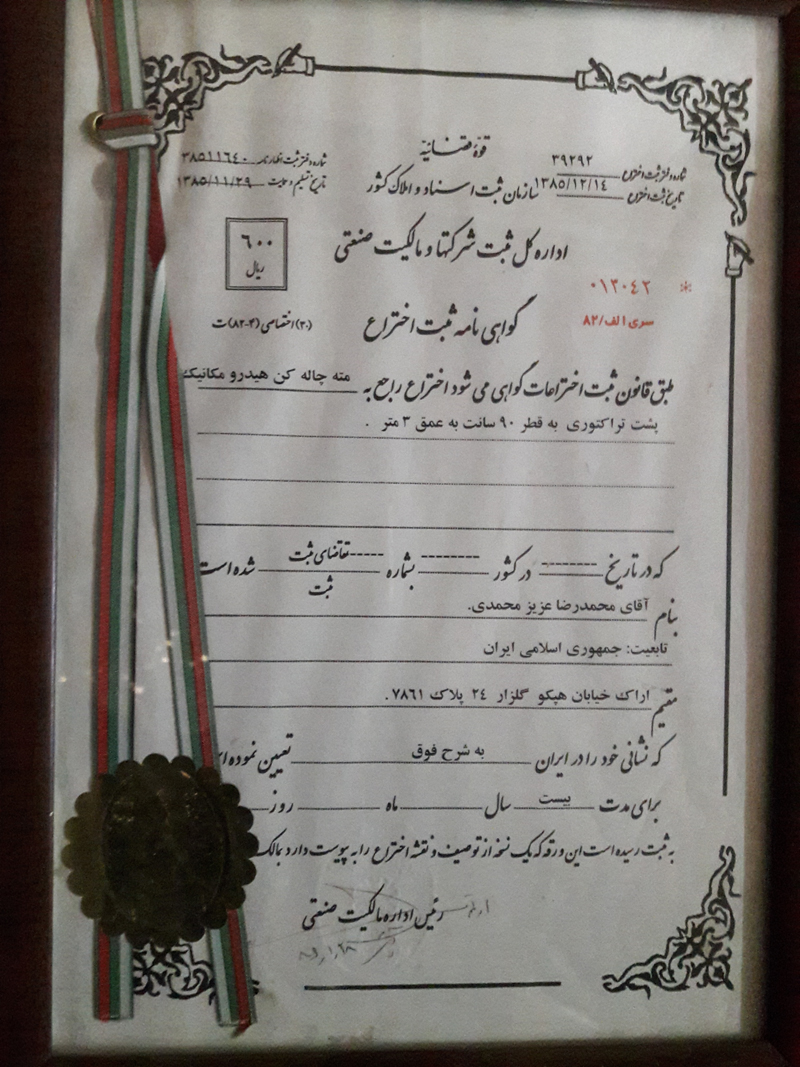 قوهٔ قضائیه
شماره دفتر ثبت اختراع ۳۹۲۹۲
تاریخ ثبت اختراع ۱۳۸۵/۱۲/۱۴
شماره دفتر ثبت اظهارنامه ۳۸۵۱۱۶۴۰
تاریخ تسلیم و حمایت ۱۳۸۵/۱۱/۲۹
سازمان ثبت اسناد و املاک کشور
اداره کل ثبت شرکتها و مالکیت صنعتی
۶۰۰
ریال
* ۰۱۳۰۴۲
سری الف/۸۲
گواهی نامه ثبت اختراع
(۳۰) اختصاصی (۴-۸۲) ت
طبق قانون ثبت اختراعات گواهی می شود اختراع راجع به مته چاله کن هیدرو مکانیک
پشت تراکتوری به قطر ۹۰ سانت به عمق ۳ متر .
که در تاریخ -------- در کشور -------- بشماره ----- تقاضای ثبت شده است
ثبت
بنام آقای محمدرضا عزیز محمدی.
تابعیت: جمهوری اسلامی ایران
مقیم اراک خیابان هپکو گلزار ۲۴ پلاک ۷۸۶۱.
که نشانی خود را در ایران به شرح فوق تعیین نموده
برای مدت بیست سال ماه روز
به ثبت رسیده است این ورقه که یک نسخه از توصیف و نقشه اختراع را به پیوست دارد بمالک
رئیس اداره مالکیت صنعتی